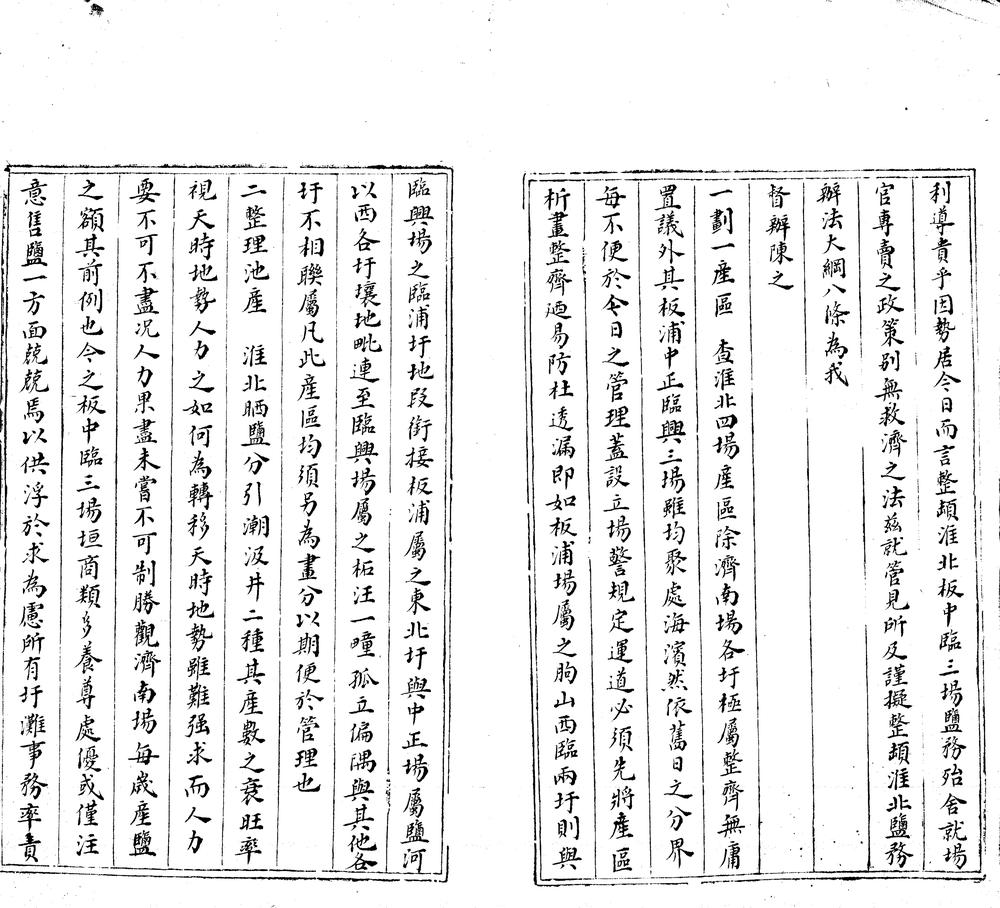 利導貴乎因勢居今日而言整頓淮北板中臨三場鹽務殆舍就場
官專賣之政策别無救濟之法茲就管見所及謹擬整頓淮北鹽務
辦法大綱八條為我
督辦陳之
一劃一產區　查淮北四場產區除濟南場各圩極屬整齊無庸
置議外其板浦中正臨興三場雖均聚處海濱然依舊日之分界
每不便於今日之管理蓋設立場警規定運道必須先將產區
析畫整齊廼易防杜透漏即如板浦場屬之朐山西臨兩圩則與
臨興場之臨浦圩地段銜接板浦屬之東北圩與中正場屬鹽河
以西各圩壤地毗連至臨興場屬之柘汪一疃孤立偏隅與其他各
圩不相聯屬凡此產區均須另為畫分以期便於管理也
二整理池產　淮北晒鹽分引潮汲井二種其產數之衰旺率
視天時地勢人力之如何為轉移天時地勢雖難强求而人力
要不可不盡况人力果盡未嘗不可制勝觀濟南場每歲產鹽
之額其前例也今之板中臨三場垣商類多養尊處優或僅注
意售鹽一方面兢兢焉以供浮於求為慮所有圩灘事務率責